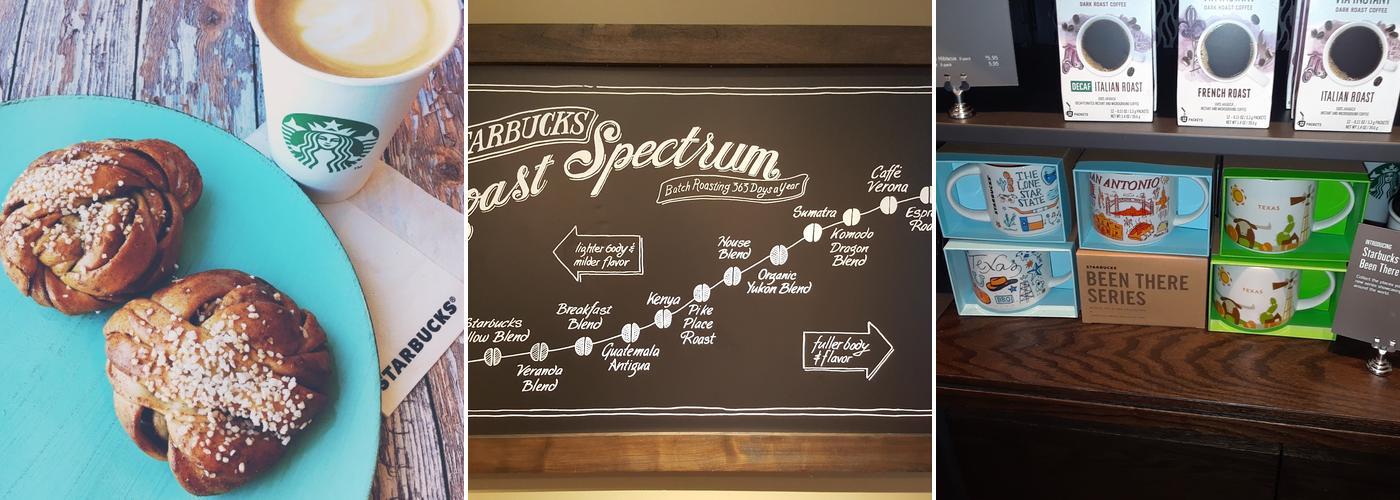 STARBUCKS®
TARBUCKS
oast Spectrum
Batch Roasting 365 Days a Year
Caffè
Verona
Sumatra
Komodo
Dragon
Blend
lighter body &
milder flavor
House
Blend
Organic
Yukon Blend
Kenya
Pike
Place
Roast
Breakfast
Blend
Guatemala
Antigua
Starbucks
llow Blend
Veranda
Blend
fuller body
& flavor
DARK ROAST COFFEE
DECAF ITALIAN ROAST
VIA INSTANT
DARK ROAST COFFEE
FRENCH ROAST
VIA INSTANT
DARK ROAST COFFEE
ITALIAN ROAST
$5.95
5.95
THE
LONE
STAR
STATE
AN ANTONIO
TEXAS
Texas
BBQ
STARBUCKS
BEEN THERE
SERIES
TEXAS
INTRODUCING
Starbucks
Been There